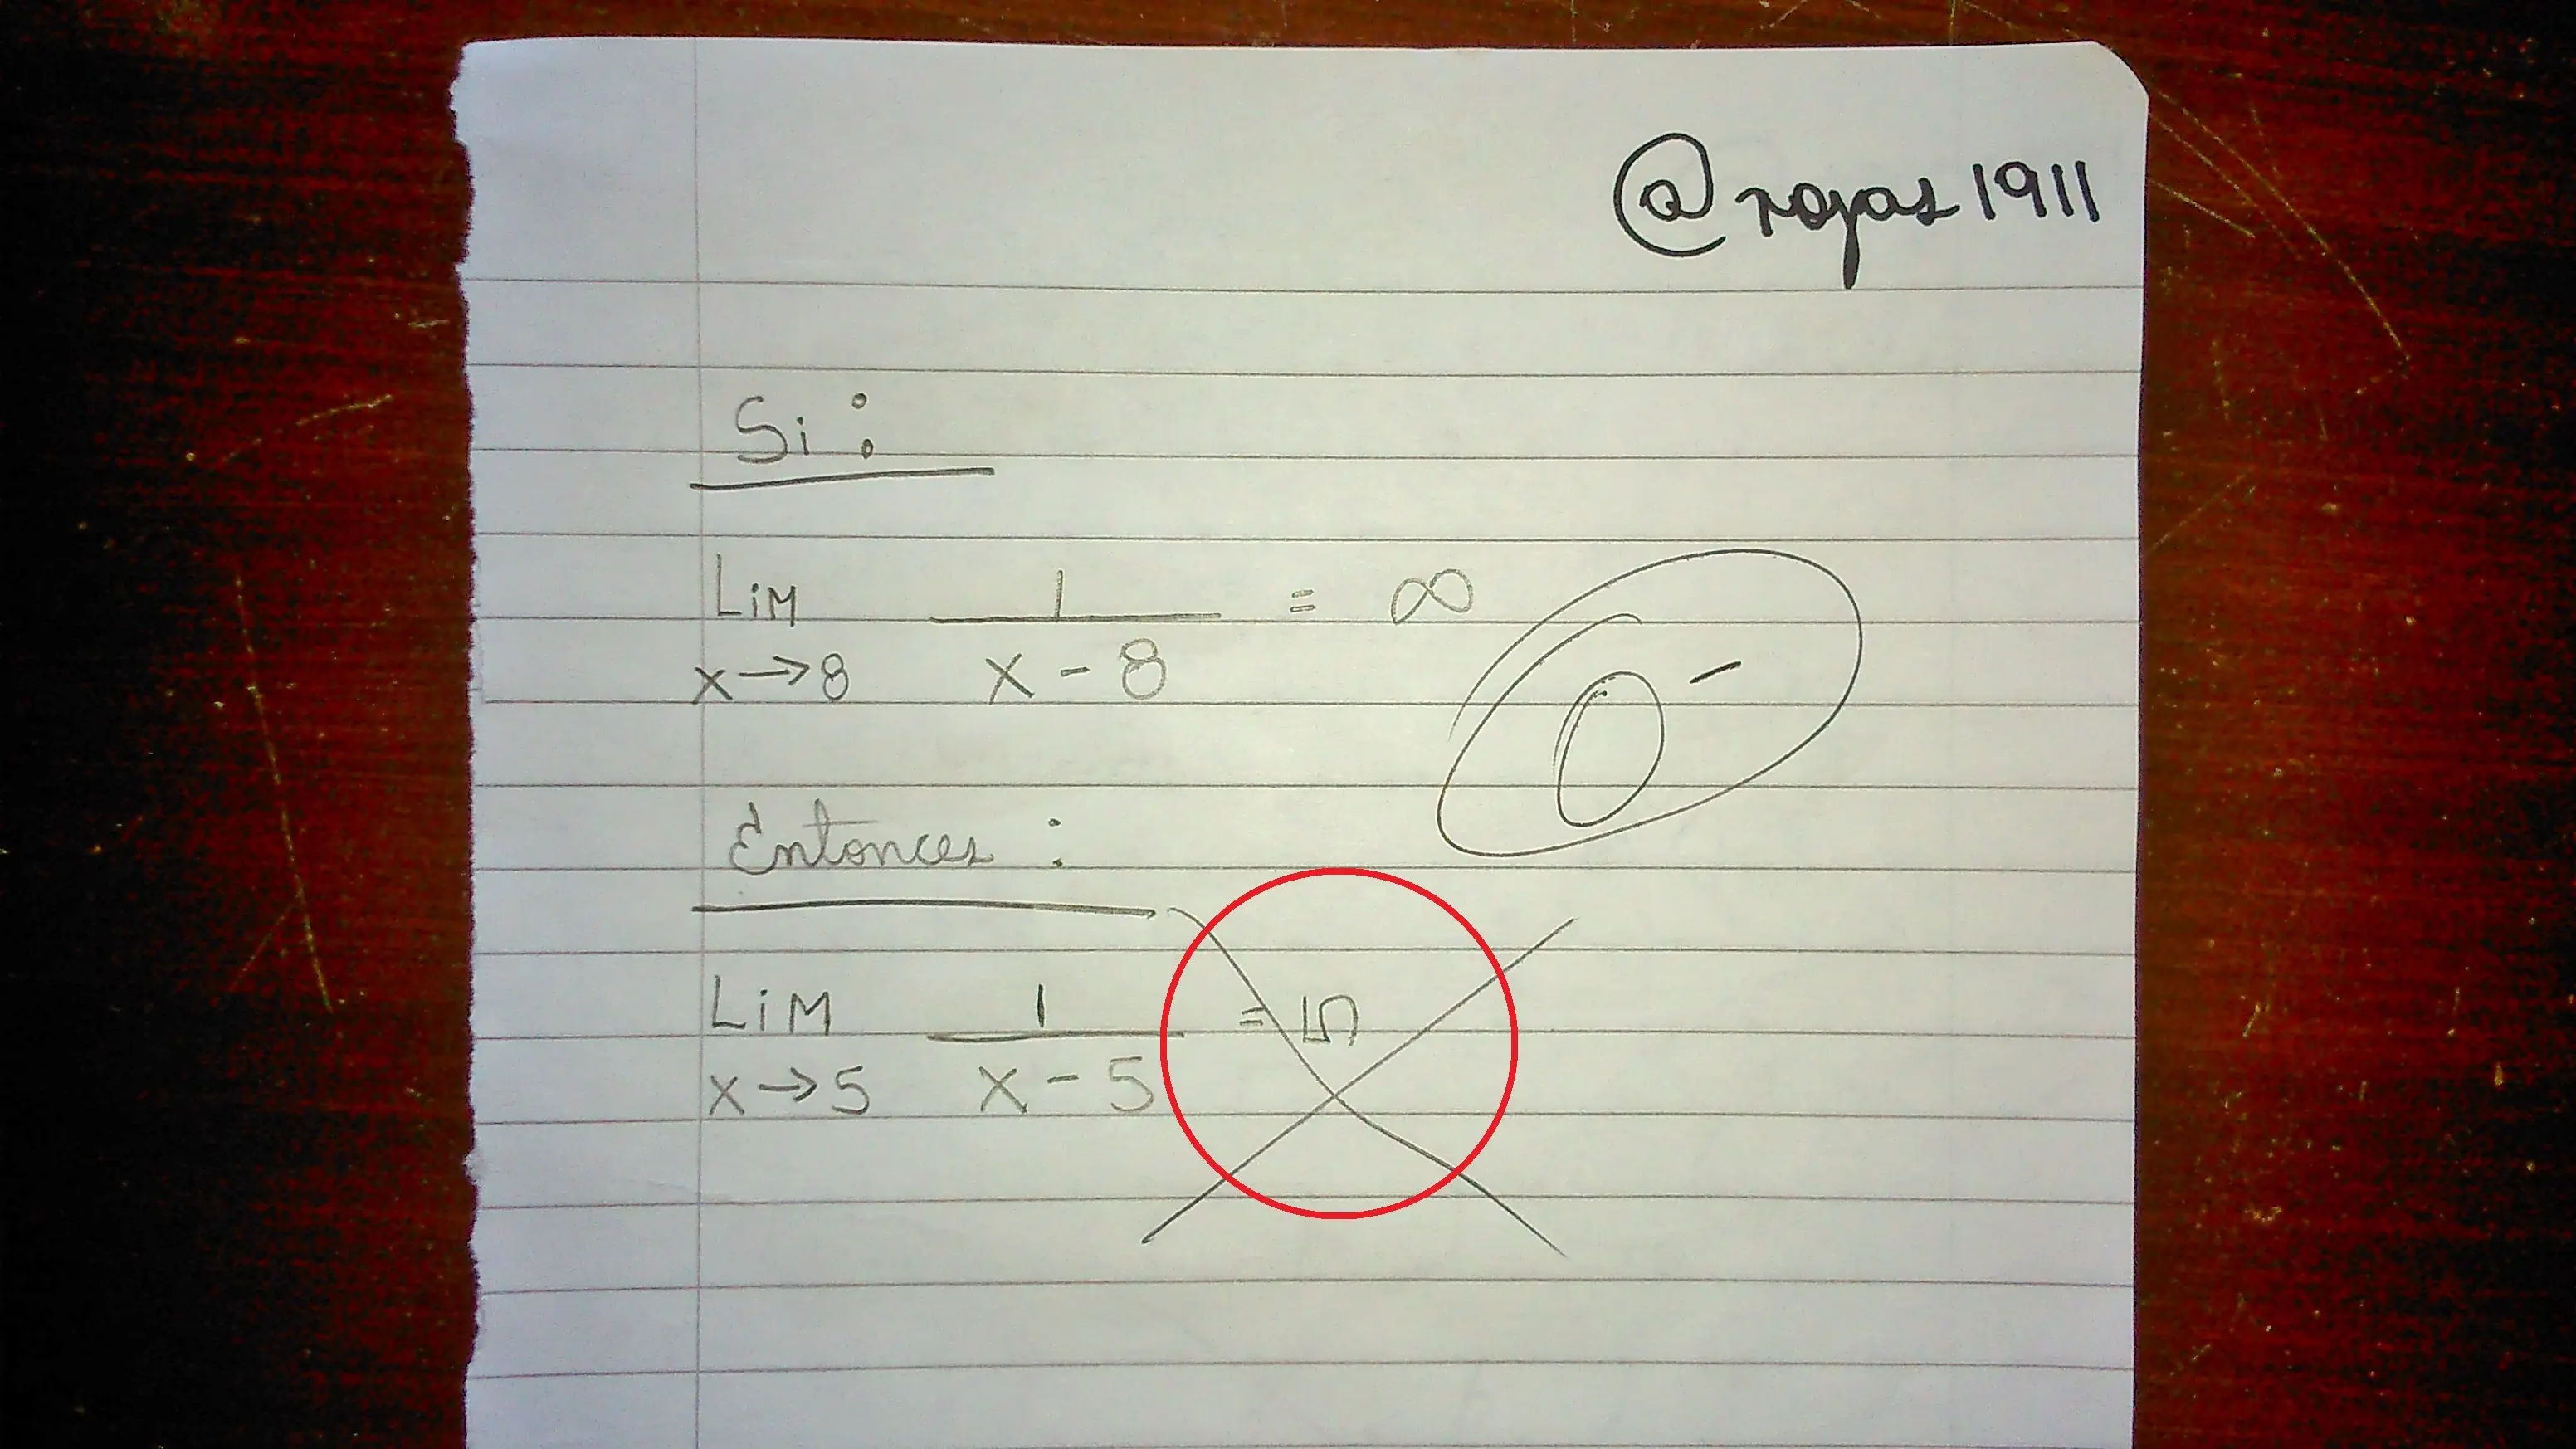 @rojas1911
Si:
Lim 1 = ∞
x→8 x-8
0-
Entonces:
Lim 1 = 5
x→5 x-5